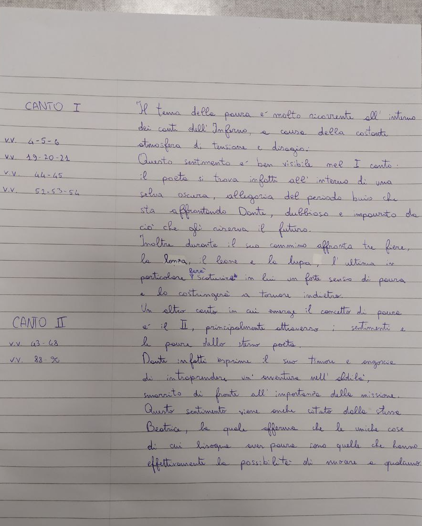 CANTO I
v.v. 4-5-6
v.v. 19-20-21
v.v. 44-45
v.v. 52-53-54
Il tema della paura e' molto ricorrente all' interno
dei canti dell' Inferno, a causa della costante
atmosfera di tensione e disagio.
Questo sentimento e' ben visibile nel I canto:
il poeta si trova infatti all' interno di una
selva oscura, allegoria del periodo buio che
sta affrontando Dante, dubbioso e impaurito da
cio' che gli riserva il futuro.
Inoltre durante il suo cammino affronta tre fiere,
la lonza, il leone e la lupa, l' ultima in
particolare fara' in lui un forte senso di paura
e lo costringera' a tornare indietro.
Un altro canto in cui emerge il concetto di paura
e' il II, principalmente attraverso i sentimenti e
le paure dello stesso poeta.
CANTO II
v.v. 43-48
v.v. 88-90
Dante infatti esprime il suo timore e angoscia
di intraprendere un' avventura nell' aldilà,
smarrito di fronte all' importanza della missione.
Questo sentimento viene anche citato dalla stessa
Beatrice, la quale afferma che le uniche cose
di cui bisogna aver paura sono quelle che hanno
effettivamente la possibilità di nuocere a qualcuno